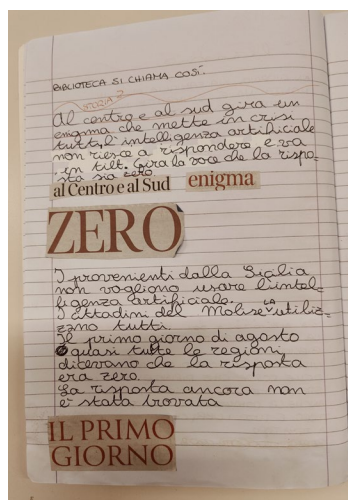 BIBLIOTECA SI CHIAMA COSÌ.
Al centro e al sud gira un
enigma che mette in crisi
tutti, l'intelligenza artificiale
non riesce a rispondere e va
in tilt. Gira la voce che la rispo-
sta sia zero
al Centro e al Sud enigma
ZERO
I provenienti dalla Sicilia
non vogliono usare l'intel-
ligenza artificiale.
I cittadini del Molise LA utiliz-
zano tutti.
Il primo giorno di agosto
quasi tutte le regioni
dicevano che la risposta
era zero.
La risposta ancora non
è stata trovata
IL PRIMO
GIORNO